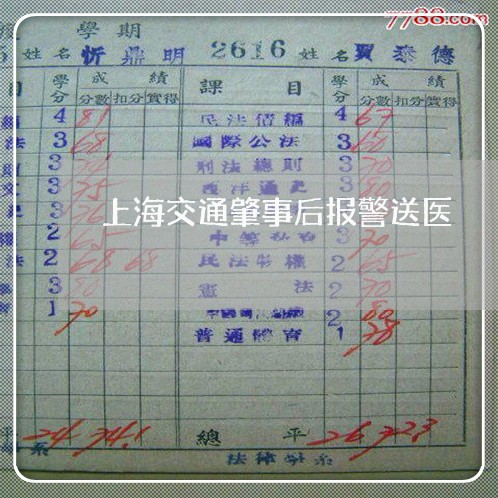 7788.com
學期
姓名 忻鼎明 2616 姓名 賈泰德
目 學分 成績 課目 學分 成績
分數 扣分 實得 分數 扣分 實得
4 81 民法債編 4 67
法 3 68 國際公法 3 60
3 刑法總則 3 70
3 75 西洋通史 3 80
上海交通肇事后报警送医
2 65 3 70
法 2 68 68 民法物權 2 65
3 80 憲法 2 70
育 1 70 2 80
普通體育 1 78
平 24 74.1 總平 26 72.3
系 法律學系